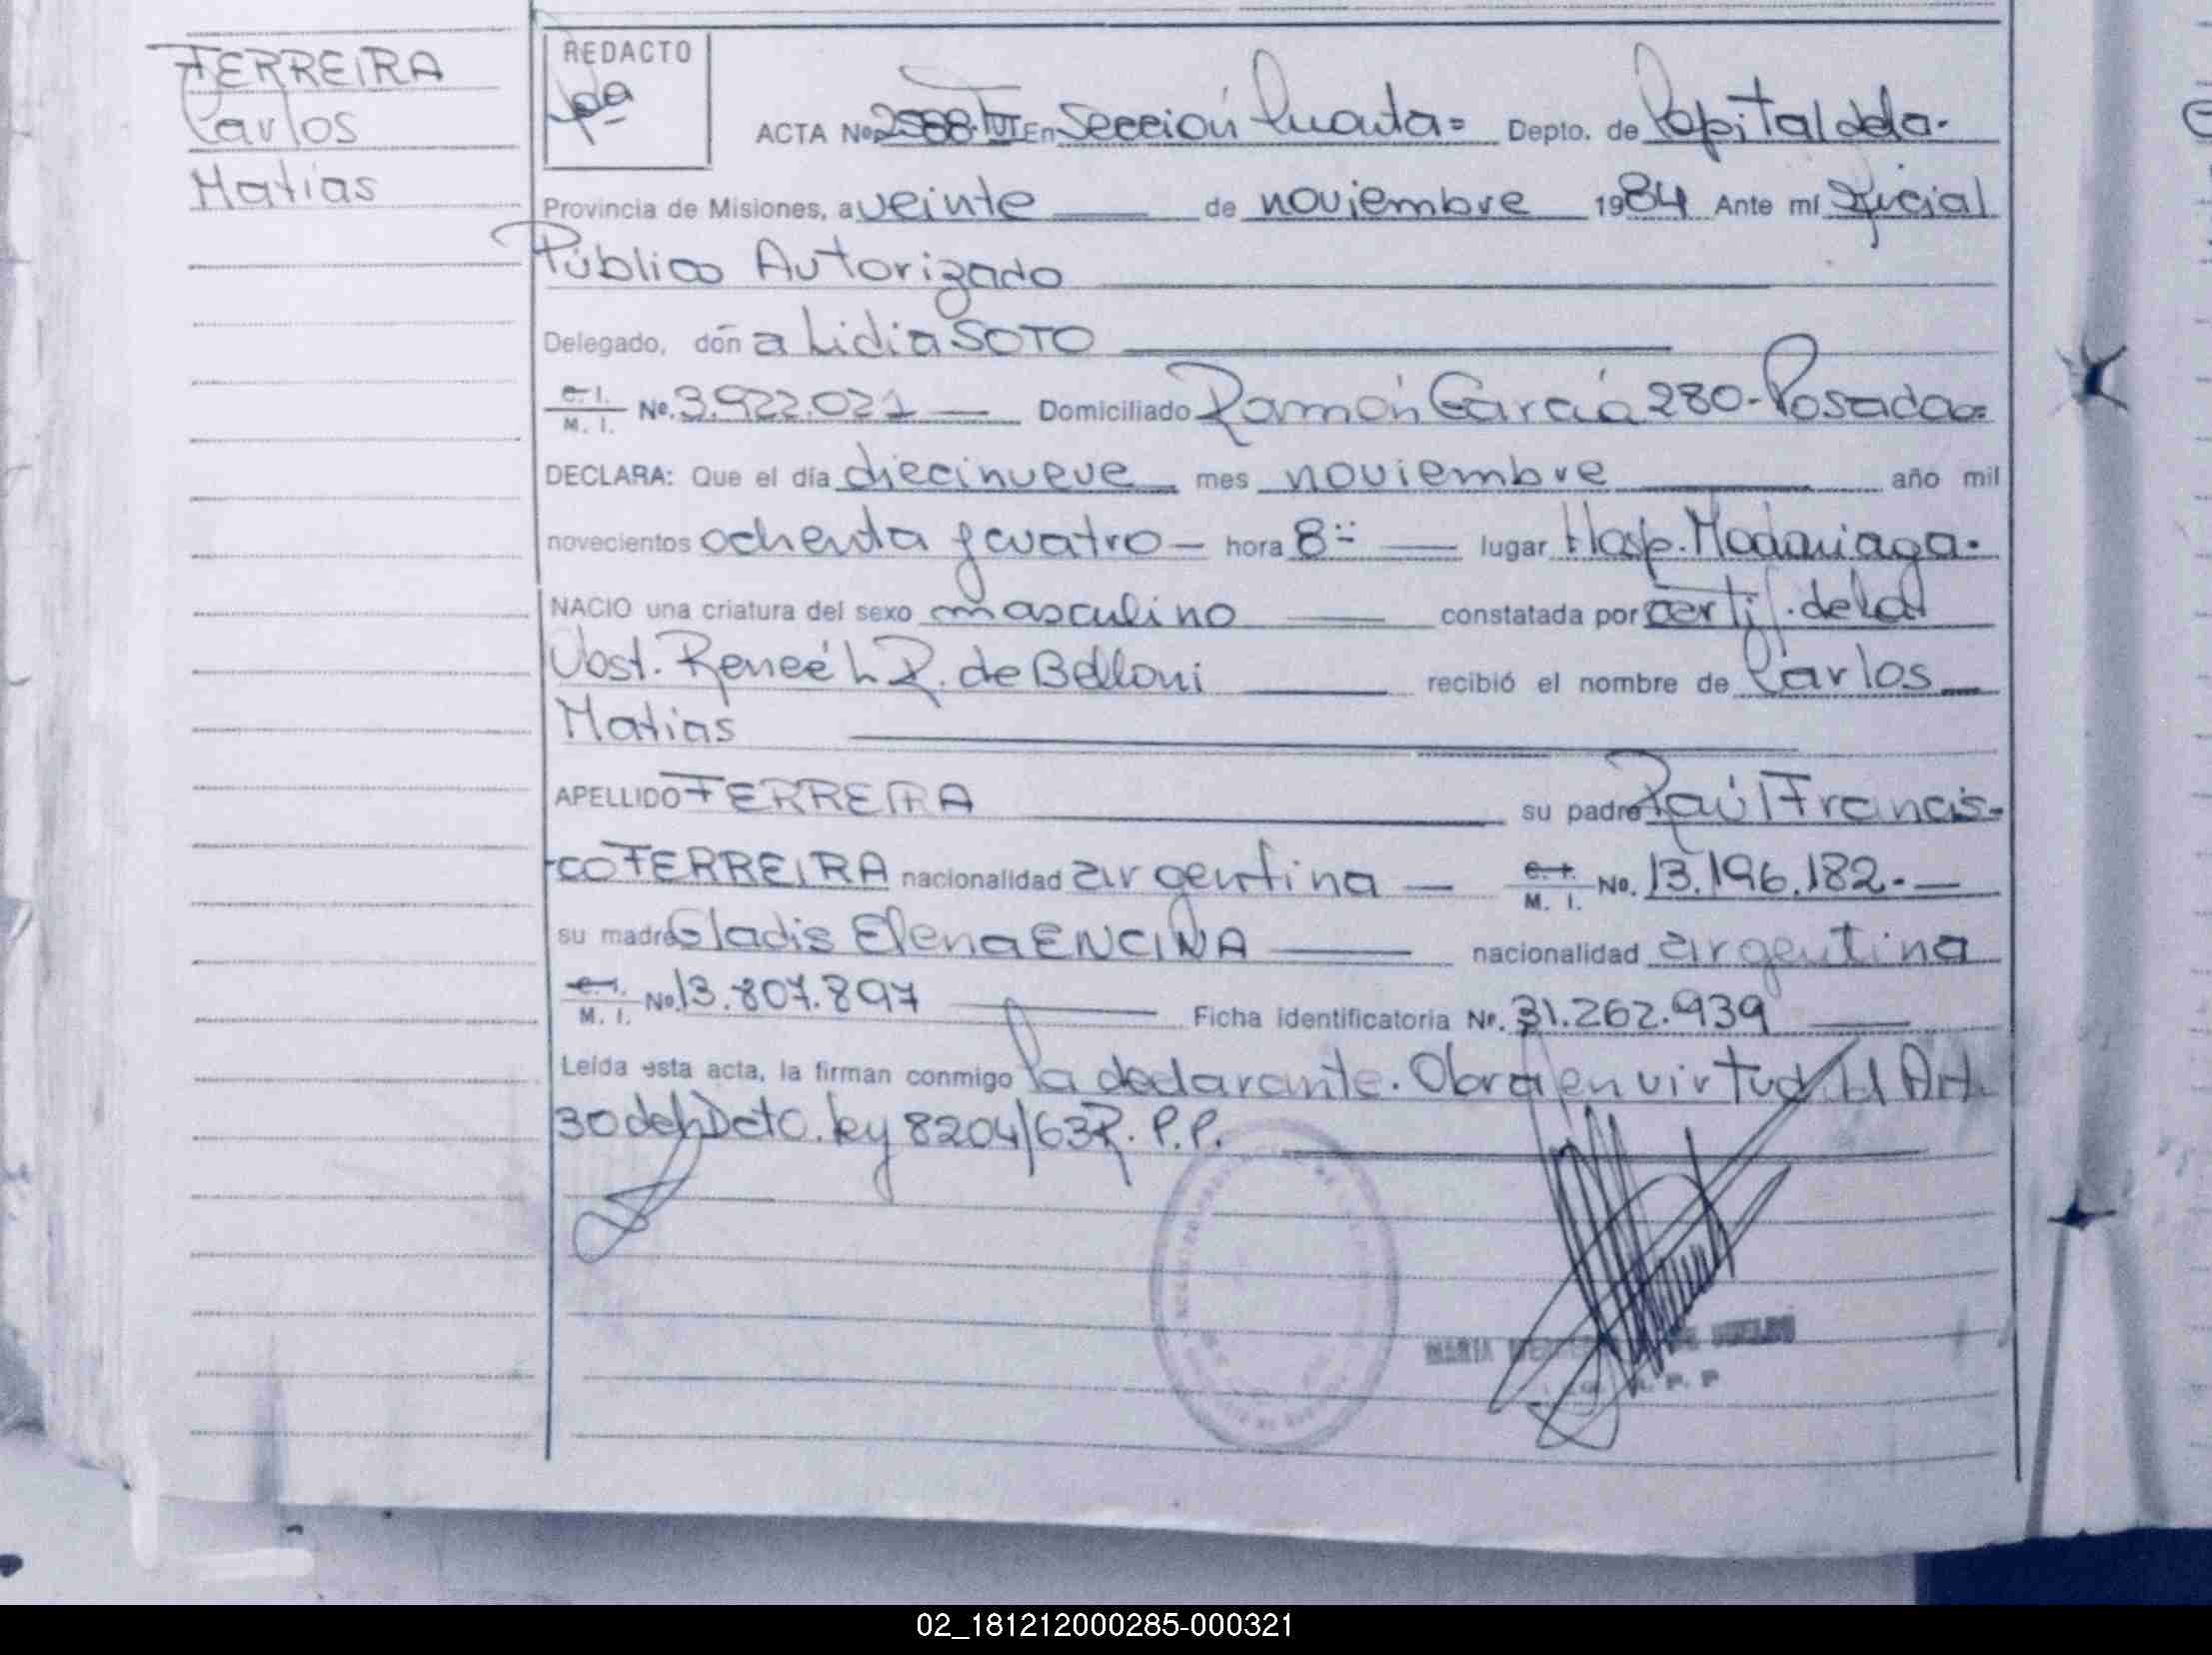 FERREIRA
Carlos
Matias
REDACTO
ACTA No 2588 TVI En Sección Cuarta = Depto. de Capital de la.
Provincia de Misiones, a veinte de noviembre 1984 Ante mí Oficial
Público Autorizado
Delegado, don a Lidia SOTO
C. I. M. I. No. 3.922.021 — Domiciliado Ramón García 280 - Posadas=
DECLARA: Que el día diecinueve mes noviembre año mil
novecientos ochenta y cuatro — hora 8 — lugar Hosp. Madariaga.
NACIO una criatura del sexo masculino — constatada por certif. de la
Obst. Reneé L R. de Belloni recibió el nombre de Carlos
Matias
APELLIDO FERREIRA su padre Raúl Francis-
-co FERREIRA nacionalidad argentina — C. I. M. I. No. 13.196.182.-
su madre Gladis Elena ENCINA — nacionalidad argentina
C. I. M. I. No. 13.807.897 Ficha identificatoria Nº. 31.262.939
Leída esta acta, la firman conmigo la declarante. Obra en virtud del Art.
30 del Dcto. Ley 8204/63 R. P.P.
MARIA
02_181212000285-000321